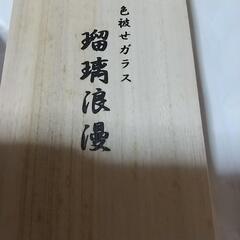 色被せガラス
瑠璃浪漫